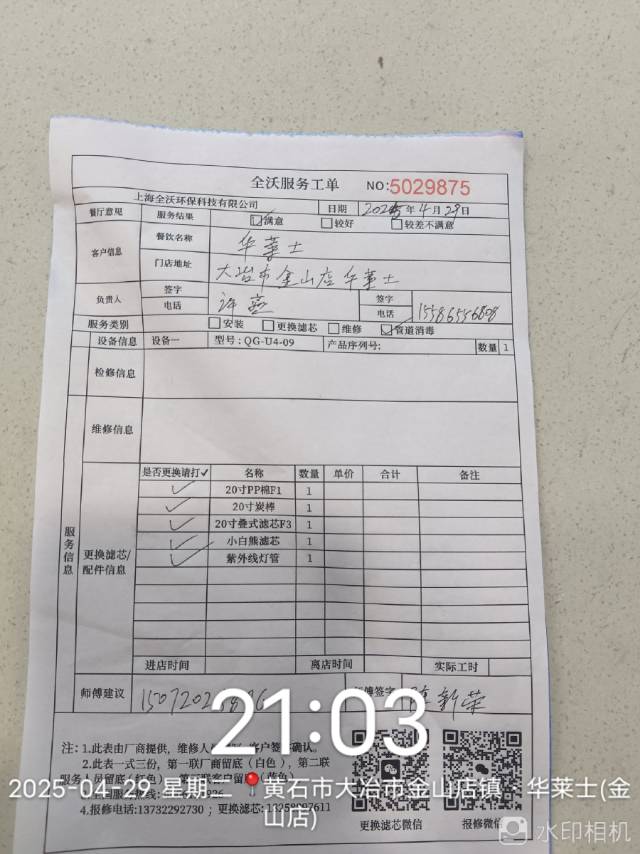 全沃服务工单 NO:5029875
上海全沃环保科技有限公司 日期 2025年4月29日
餐厅意见 服务结果 满意 较好 较差不满意
客户信息 餐饮名称 华莱士
门店地址 大冶市金山店华莱士
负责人 签字 电话 许燕 签字 电话 15586556808
服务类别 安装 更换滤芯 维修 管道消毒
设备信息 设备一 型号:QG-U4-09 产品序列号; 数量 1
检修信息
维修信息
服务信息
更换滤芯/配件信息
是否更换请打✓ 名称 数量 单价 合计 备注
✓ 20寸PP棉F1 1
✓ 20寸炭棒 1
✓ 20寸叠式滤芯F3 1
✓ 小白熊滤芯 1
✓ 紫外线灯管 1
进店时间 离店时间 实际工时
师傅建议 签字 新荣
21:03
注:1.此表由厂商提供,维修人 客户签字确认。
2.此表一式三份,第一联厂商留底(白色),第二联
服务人员留底(红色) 第三联客户留 (黄色)
2025-04-29 星期二 黄石市大冶市金山店镇·华莱士(金山店)
4.报修电话:13732292730;更换滤芯:
更换滤芯微信 报修微信
水印相机